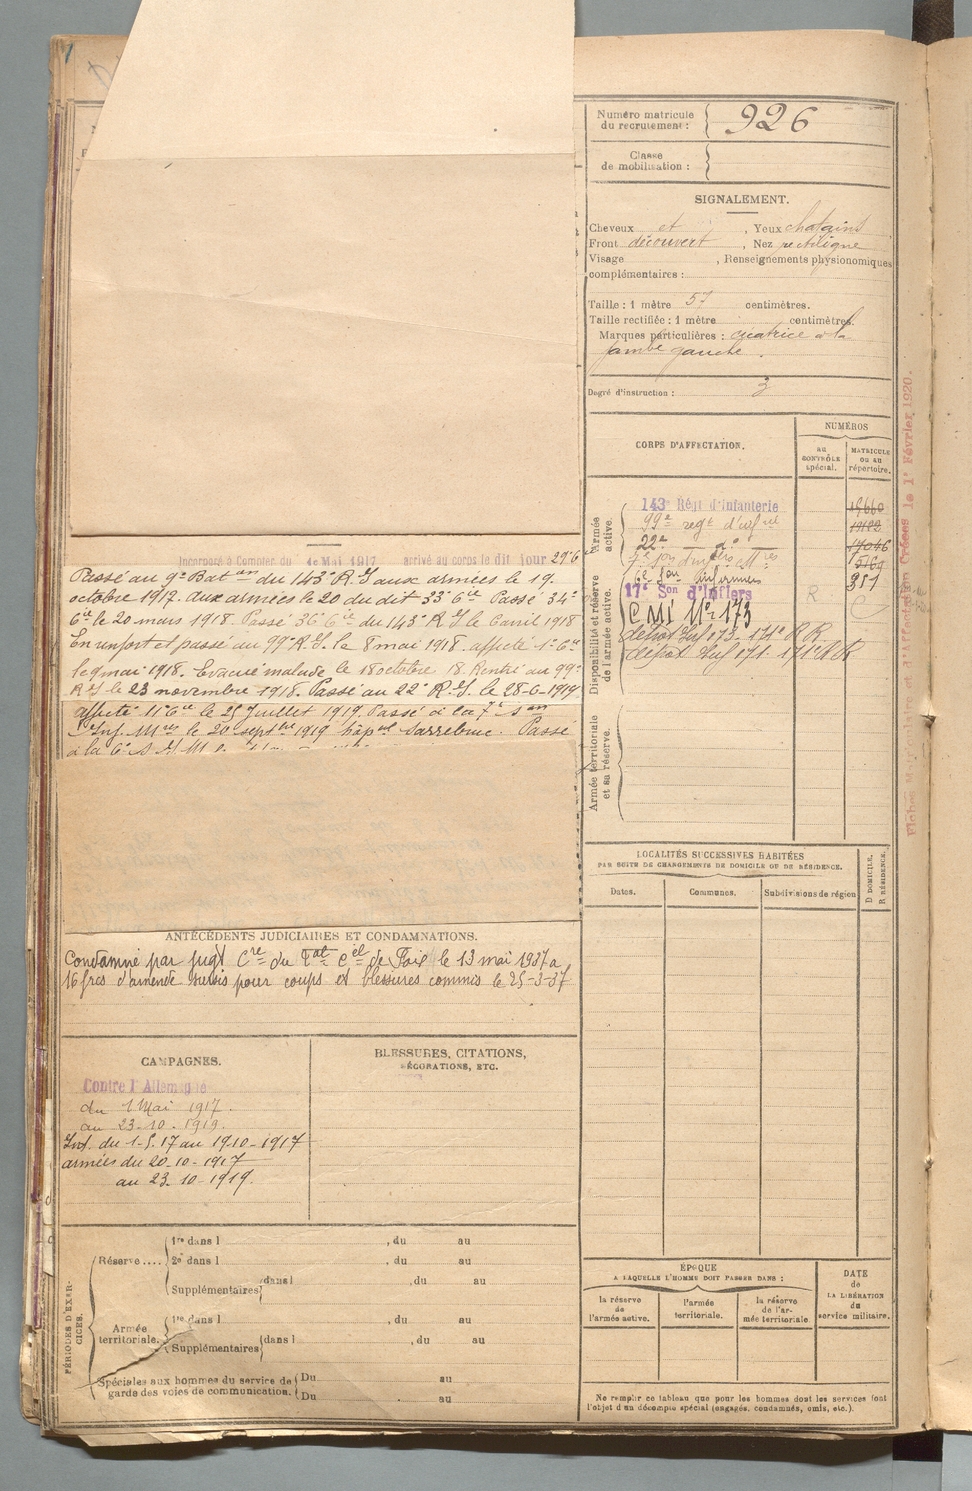 Numéro matricule
du recrutement : 926
Classe
de mobilisation :
SIGNALEMENT.
Cheveux et , Yeux chatains
Front découvert , Nez rectiligne
Visage , Renseignements physionomiques
complémentaires :
Taille : 1 mètre 57 centimètres.
Taille rectifiée : 1 mètre centimètres.
Marques particulières : cicatrice à la
jambe gauche.
Degré d'instruction : 3
CORPS D'AFFECTATION.
NUMÉROS
au
CONTRÔLE
spécial.
MATRICULE
ou au
répertoire.
Armée
active.
143e Régt d'Infanterie
99e regt d'inf
22e do
6e Son infirmiers
Disponibilité et réserve
de l'armée active.
17e Son d'Infiers R
CMI No 173
dépôt Inf 173 - 171e R R
dépôt Inf 171 - 171e R R
19182
17046
5169
951
Armée territoriale
et sa réserve.
Fiches Mat et d'Affectation Créées le 1er Février 1920.
Incorporé à Compter du 1e Mai 1917 arrivé au corps le dit jour 29e 6
Passé au 9e Baton du 143e R.I aux armées le 19.
octobre 1917. aux armées le 20 du dit 33e Cie Passé 34e
Cie le 20 mars 1918. Passé 36e Cie du 143e R.I le 6 avril 1918
En renfort et passé au 99e R.I. le 8 mai 1918. affecté 1e Cie
le 9 mai 1918. Evacué malade le 18 octobre 18. Rentré au 99e
R.I le 23 novembre 1918. Passé au 22e R.I. le 28-6-1919
affecté 11e Cie le 25 Juillet 1919. Passé à la 7e Son
Inf. Mres le 20 septbre 1919 hôpal Sarrebruc. Passé
à la 6e S
ANTÉCÉDENTS JUDICIAIRES ET CONDAMNATIONS.
Condamné par jugt Cre du Tal Cel de Foix le 13 mai 1937 a
16 frcs d'amende sursis pour coups et blessures commis le 25-3-37
CAMPAGNES.
Contre l'Allemagne
du 1 Mai 1917.
au 23-10-1919.
Int. du 1-5.17 au 19-10-1917
armées du 20-10-1917
au 23-10-1919.
BLESSURES, CITATIONS,
DÉCORATIONS, ETC.
LOCALITÉS SUCCESSIVES HABITÉES
PAR SUITE DE CHANGEMENTS DE DOMICILE OU DE RÉSIDENCE.
Dates. Communes. Subdivisions de région
D DOMICILE.
R RÉSIDENCE.
PÉRIODES D'EXER-
CICES.
Réserve....
1re dans l , du au
2e dans l , du au
Supplémentaires dans l , du au
Armée
territoriale.
1re dans l , du au
Supplémentaires dans l , du au
Spéciales aux hommes du service de
garde des voies de communication.
Du au
Du au
ÉPOQUE
A LAQUELLE L'HOMME DOIT PASSER DANS :
la réserve
de
l'armée active.
l'armée
territoriale.
la réserve
de l'ar-
mée territoriale
DATE
de
LA LIBÉRATION
du
service militaire.
Ne remplir ce tableau que pour les hommes dont les services font
l'objet d'un décompte spécial (engagés, condamnés, omis, etc.).